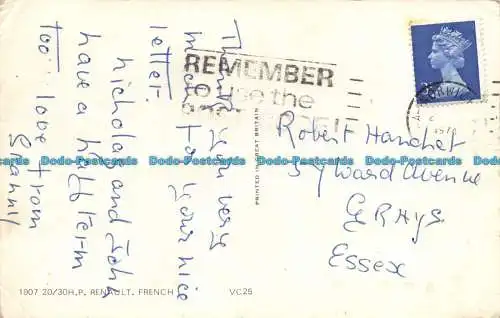 Thank you very
much for
your nice
letter.
Nicholas and John
have a half term
too love from
Granny
REMEMBER
use the
Robert Hanchet
57 Ward Avenue
GRAYS
Essex
PRINTED IN GREAT BRITAIN
1907 20/30H.P. RENAULT. FRENCH
VC25
Dodo-Postcards.com
Dodo-Postcards.com
Dodo-Postcards.com
Dodo-Postcards.com
Dodo-Postcards.com